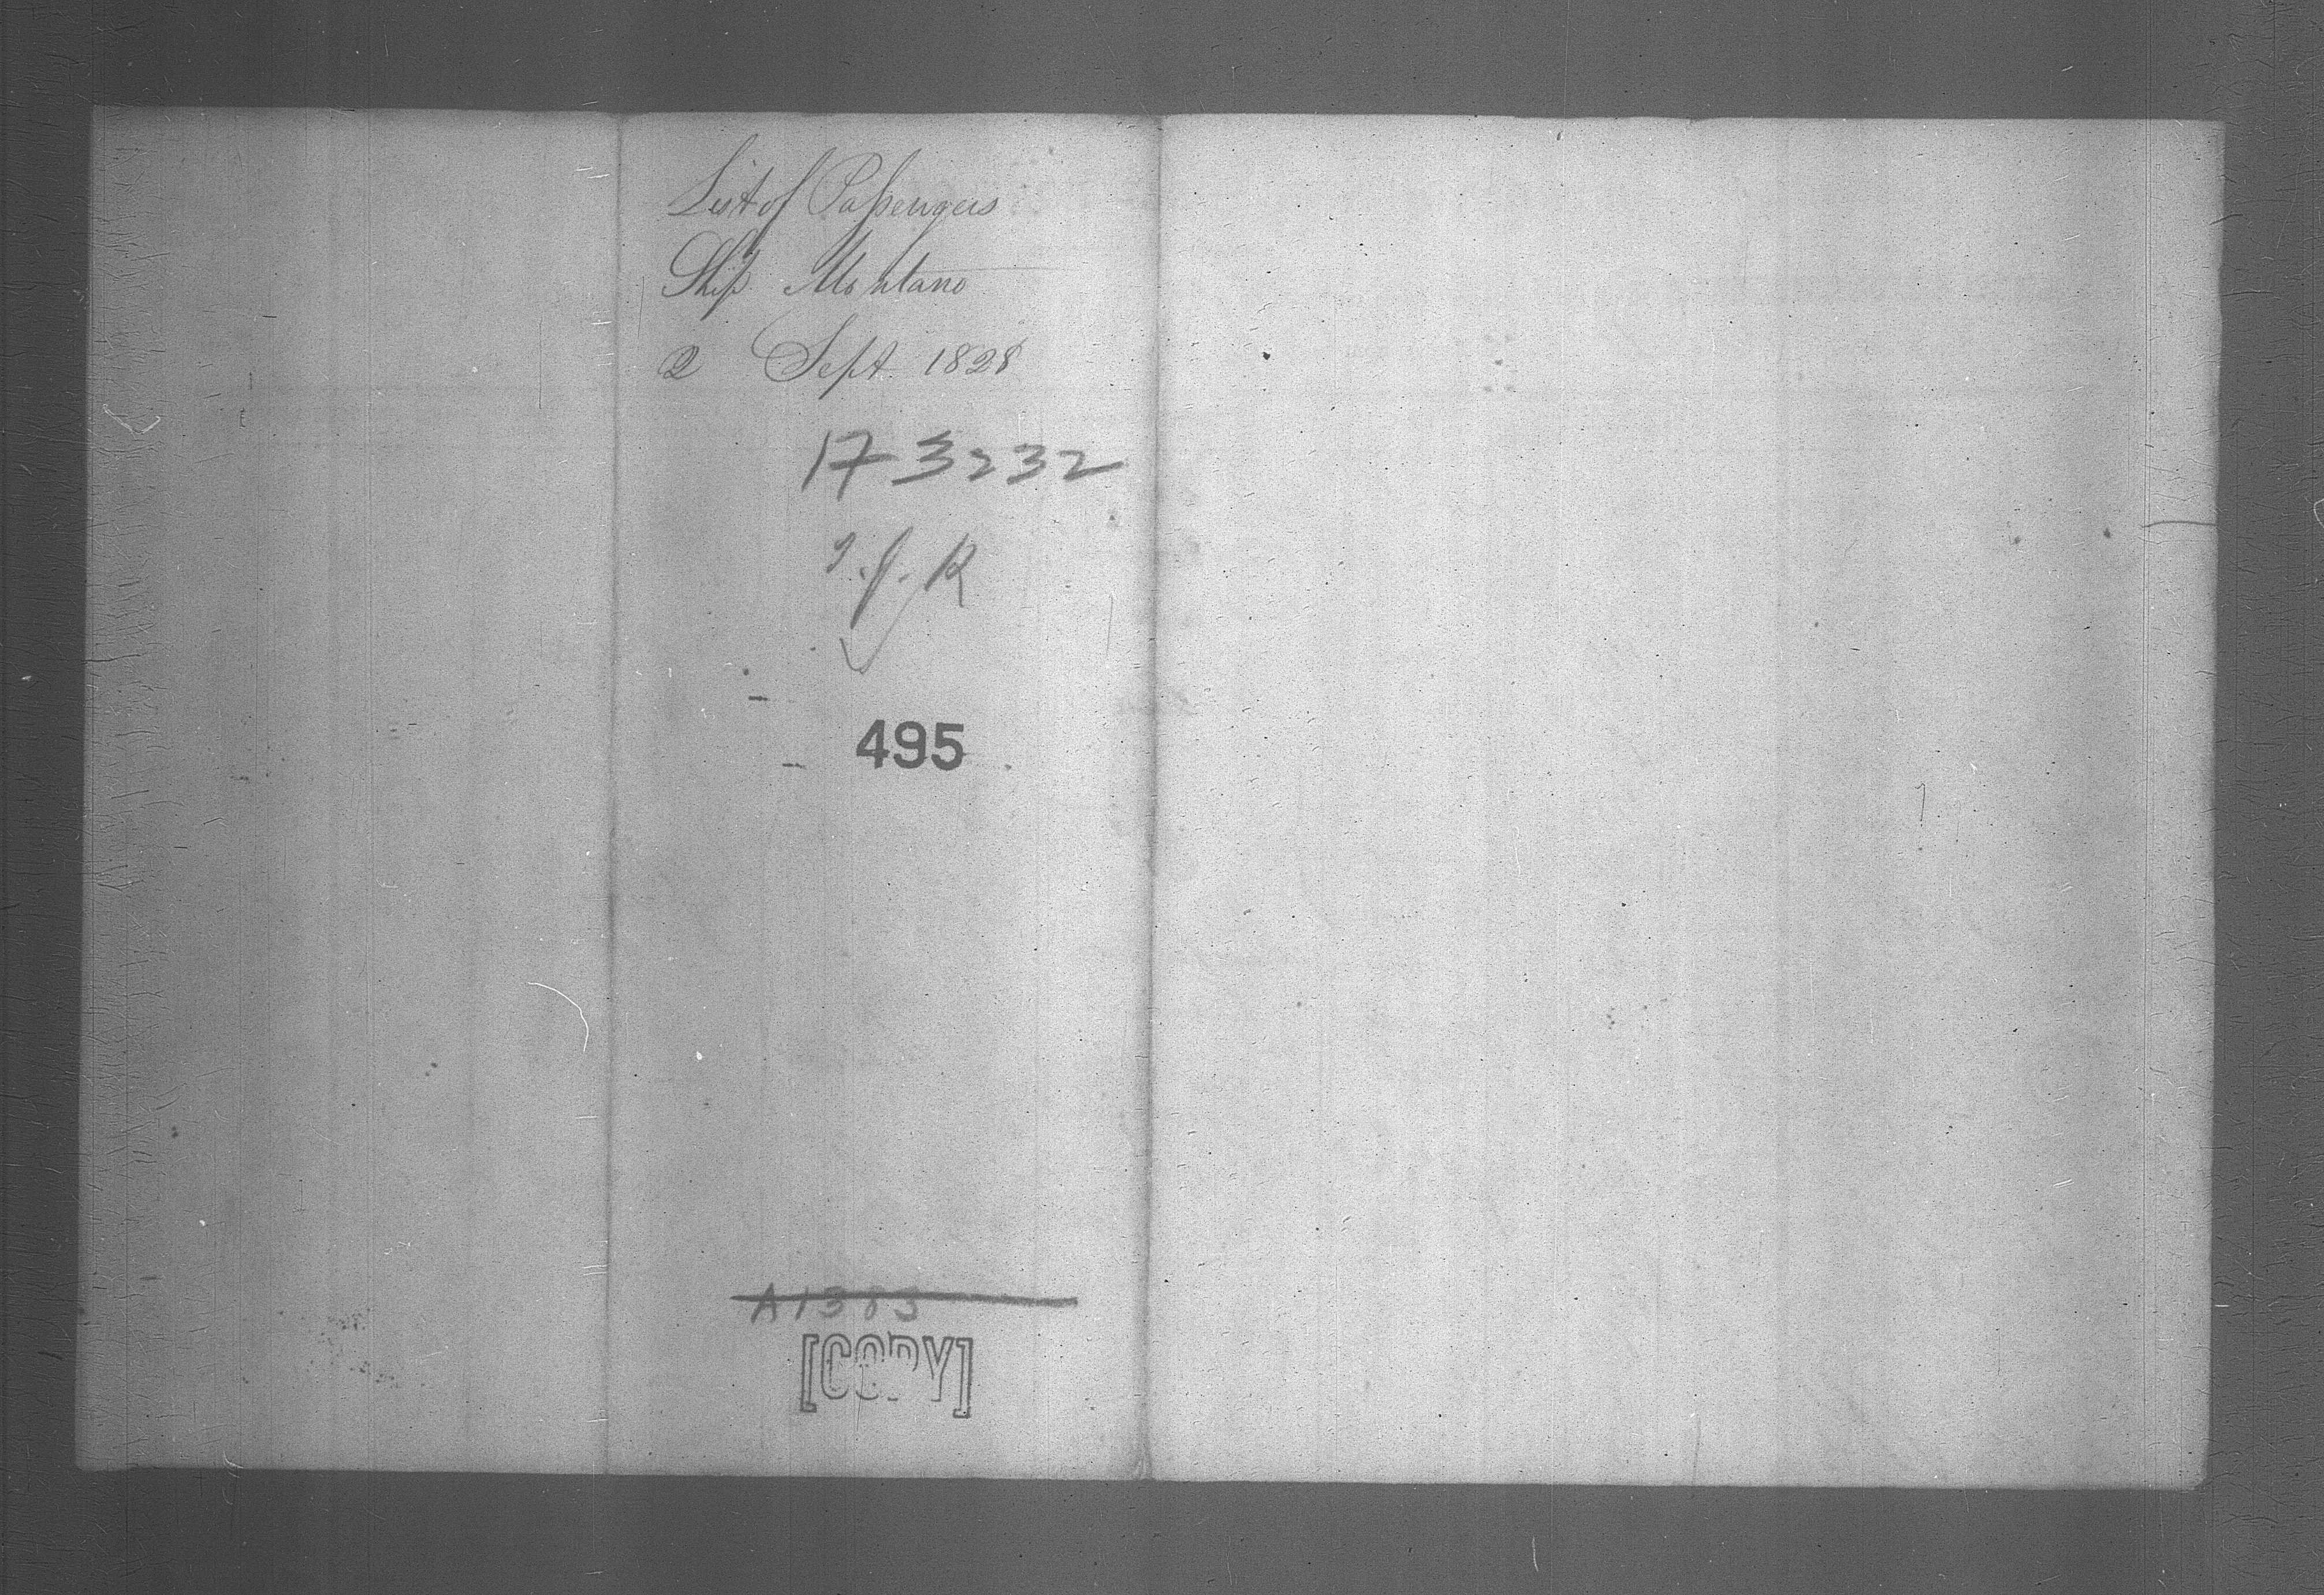 List of Passengers
Ship Montano
2 Sept. 1828
173232
J. R
495
A1383
[COPY]